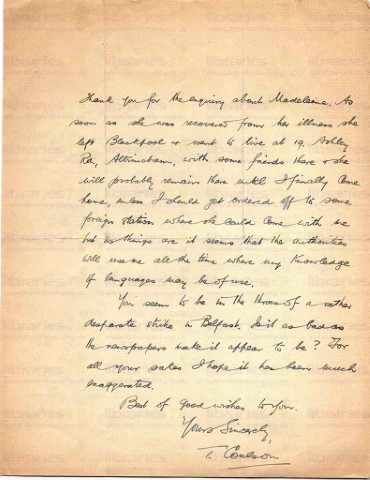 Thank you for the enquiry about Madeleine. As
soon as she was recovered from her illness she
left Blackpool & went to live at 19, Ashley
Rd, Altrincham, with some friends there & she
will probably remain there until I finally come
home, unless I should get ordered off to some
foreign station where she could come with me
but as things are it seems that the authorities
will use me all the time where my knowledge
of languages may be of use.
You seem to be in the throes of a rather
desperate strike in Belfast. Is it as bad as
the newspapers make it appear to be? For
all your sakes I hope it has been much
exaggerated.
Best of good wishes to you.
Yours Sincerely,
T. Coulson